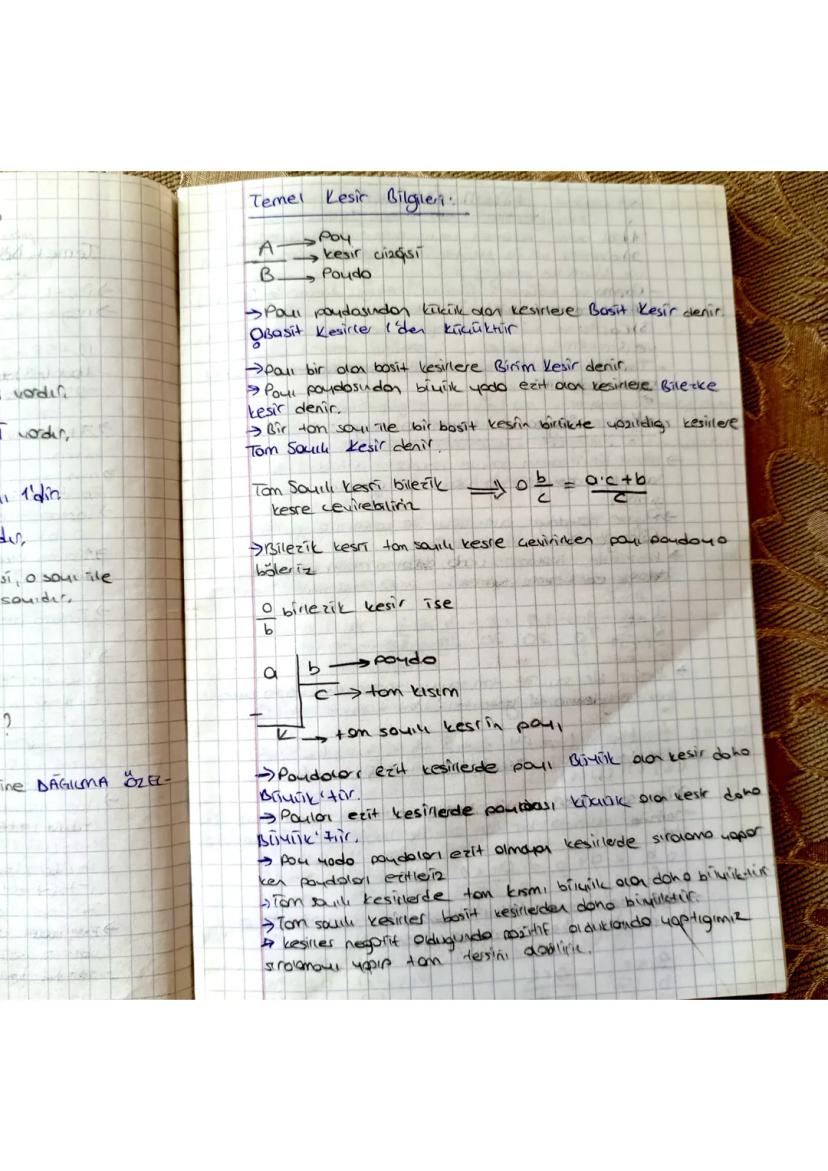 vardır.
vardır,
1'din
dır.
si, o sayı ile
sayıdır.
?
ine DAĞILMA ÖZEL-
Temel Kesir Bilgileri:
A → Pay
→ kesir çizgisi
B → Payda
→ Payı paydasından küçük olan kesirlere Basit Kesir denir.
Basit Kesirler 1'den küçüktür
→ Payı bir olan basit kesirlere Birim Kesir denir.
→ Payı paydasından büyük yada eşit olan kesirlere Bileşke
kesir denir.
→ Bir tam sayı ile bir basit kesrin birlikte yazıldığı kesirlere
Tam Sayılı Kesir denir.
Tam Sayılı Kesri bileşik ⟹ a b/c = a·c+b/c
kesre çevirebiliriz
→ Bileşik kesri tam sayılı kesre çevirirken payı paydaya
böleriz
a/b birleşik kesir ise
a | b → payda
c → tam kısım
K → tam sayılı kesrin payı
→ Paydaları eşit kesirlerde payı Büyük olan kesir daha
Büyük'tür.
→ Payları eşit kesirlerde paydası küçük olan kesir daha
Büyük'tür.
→ Pay yada paydaları eşit olmayan kesirlerde sıralama yapar
ken paydaları eşitleriz
→ Tam sayılı kesirlerde tam kısmı büyük olan daha büyüktür
→ Tam sayılı kesirler basit kesirlerden daha büyüktür.
→ kesirler negatif olduğunda pozitif olduklarında yaptığımız
sıralamayı yapıp tam tersini alabiliriz.